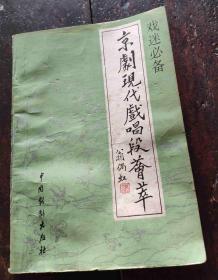 戏迷必备
京劇現代戲唱段薈萃
翁偶虹
中国戏剧出版社